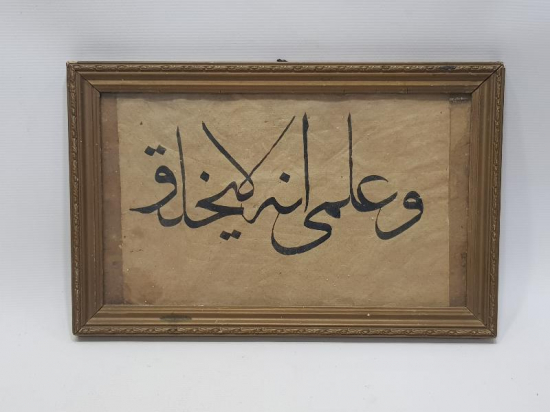 وعلمى انه لا يخلو